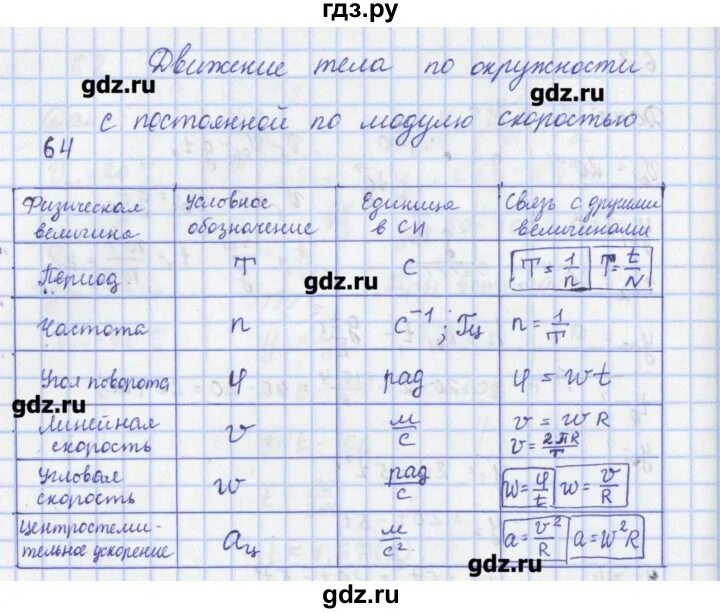 гдз.ру
Движение тела по окружности
gdz.ru
gdz.ru
с постоянной по модулю скоростью
64
Физическая величина | Условное обозначение | Единица в СИ | Связь с другими величинами
Период | T | с | T = 1/n | T = t/N
gdz.ru
Частота | n | с⁻¹; Гц | n = 1/T
Угол поворота | φ | рад | φ = wt
gdz.ru
gdz.ru
Линейная скорость | v | м/с | v = wR
v = 2πR/T
Угловая скорость | w | рад/с | w = φ/t | w = v/R
Центростеми-
тельное ускорение | aц | м/с² | a = v²/R | a = w²R
gdz.ru